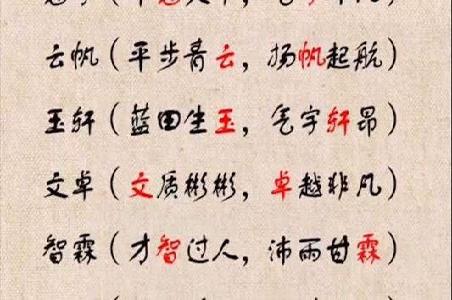 云帆（平步青云，扬帆起航）
玉轩（蓝田生玉，气宇轩昂）
文卓（文质彬彬，卓越非凡）
智霖（才智过人，沛雨甘霖）